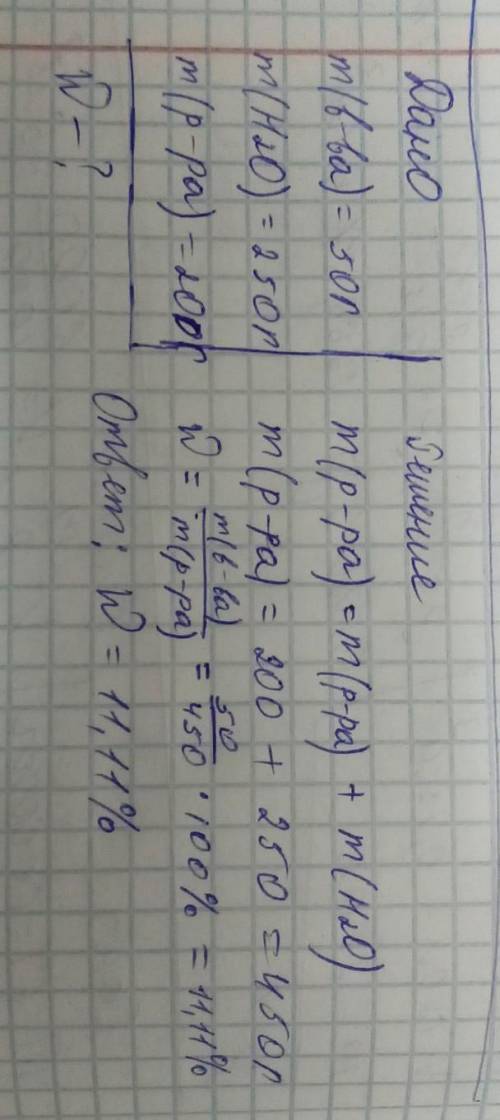 Дано
m(в-ва) = 50г
m(H₂O) = 250г
m(р-ра) = 200г
W - ?
Решение
m(р-ра) = m(р-ра) + m(H₂O)
m(р-ра) = 200 + 250 = 450г
W = m(в-ва)/m(р-ра) = 50/450 · 100% = 11,11%
Ответ: W = 11,11%